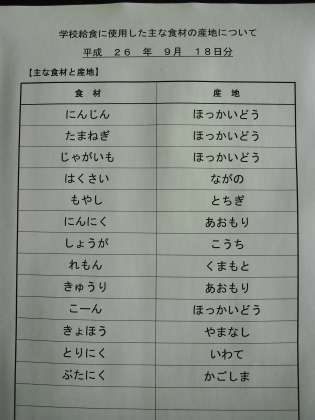 学校給食に使用した主な食材の産地について
平成 26 年 9月 18日分
【主な食材と産地】
食 材 産 地
にんじん ほっかいどう
たまねぎ ほっかいどう
じゃがいも ほっかいどう
はくさい ながの
もやし とちぎ
にんにく あおもり
しょうが こうち
れもん くまもと
きゅうり あおもり
こーん ほっかいどう
きょほう やまなし
とりにく いわて
ぶたにく かごしま